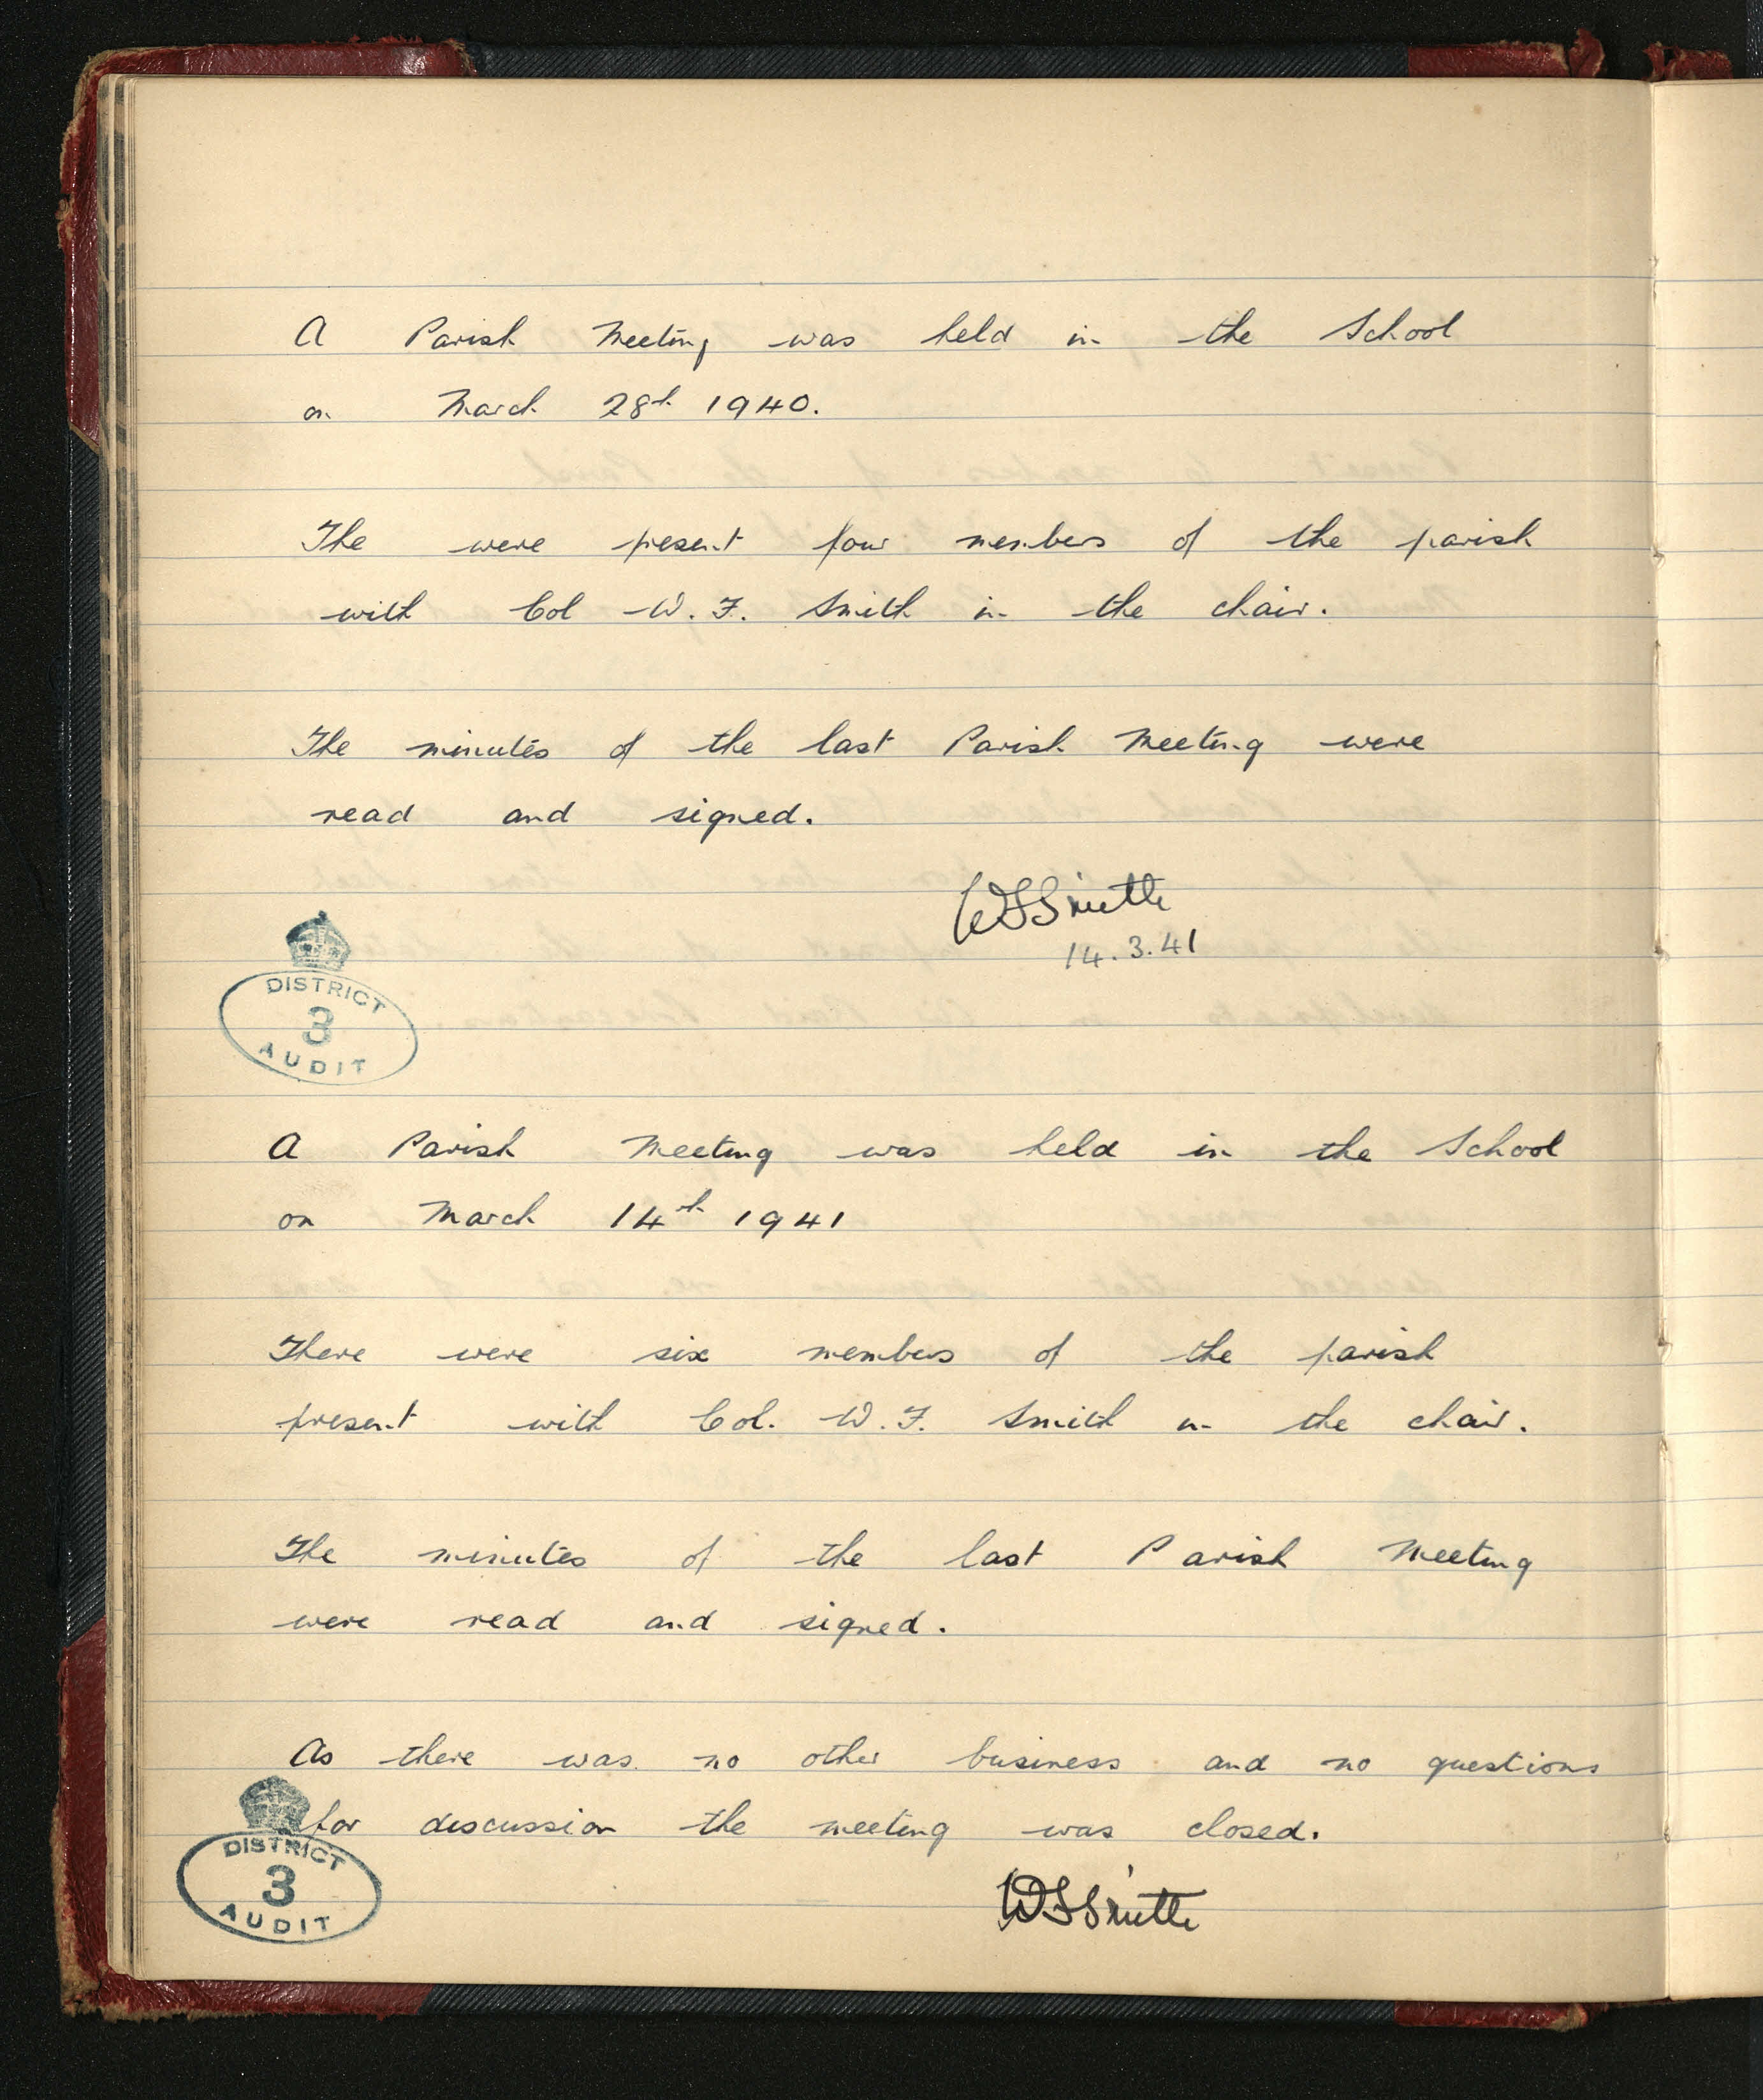 A Parish Meeting was held in the School
on March 28th 1940.
The were present four members of the parish
with Col W. F. Smith in the chair.
The minutes of the last Parish Meeting were
read and signed.
WFSmith
14.3.41
DISTRICT
3
AUDIT
A Parish Meeting was held in the School
on March 14th 1941
There were six members of the parish
present with Col. W. F. Smith in the chair.
The minutes of the last Parish Meeting
were read and signed.
As there was no other business and no questions
for discussion the meeting was closed.
DISTRICT
3
AUDIT
WFSmith